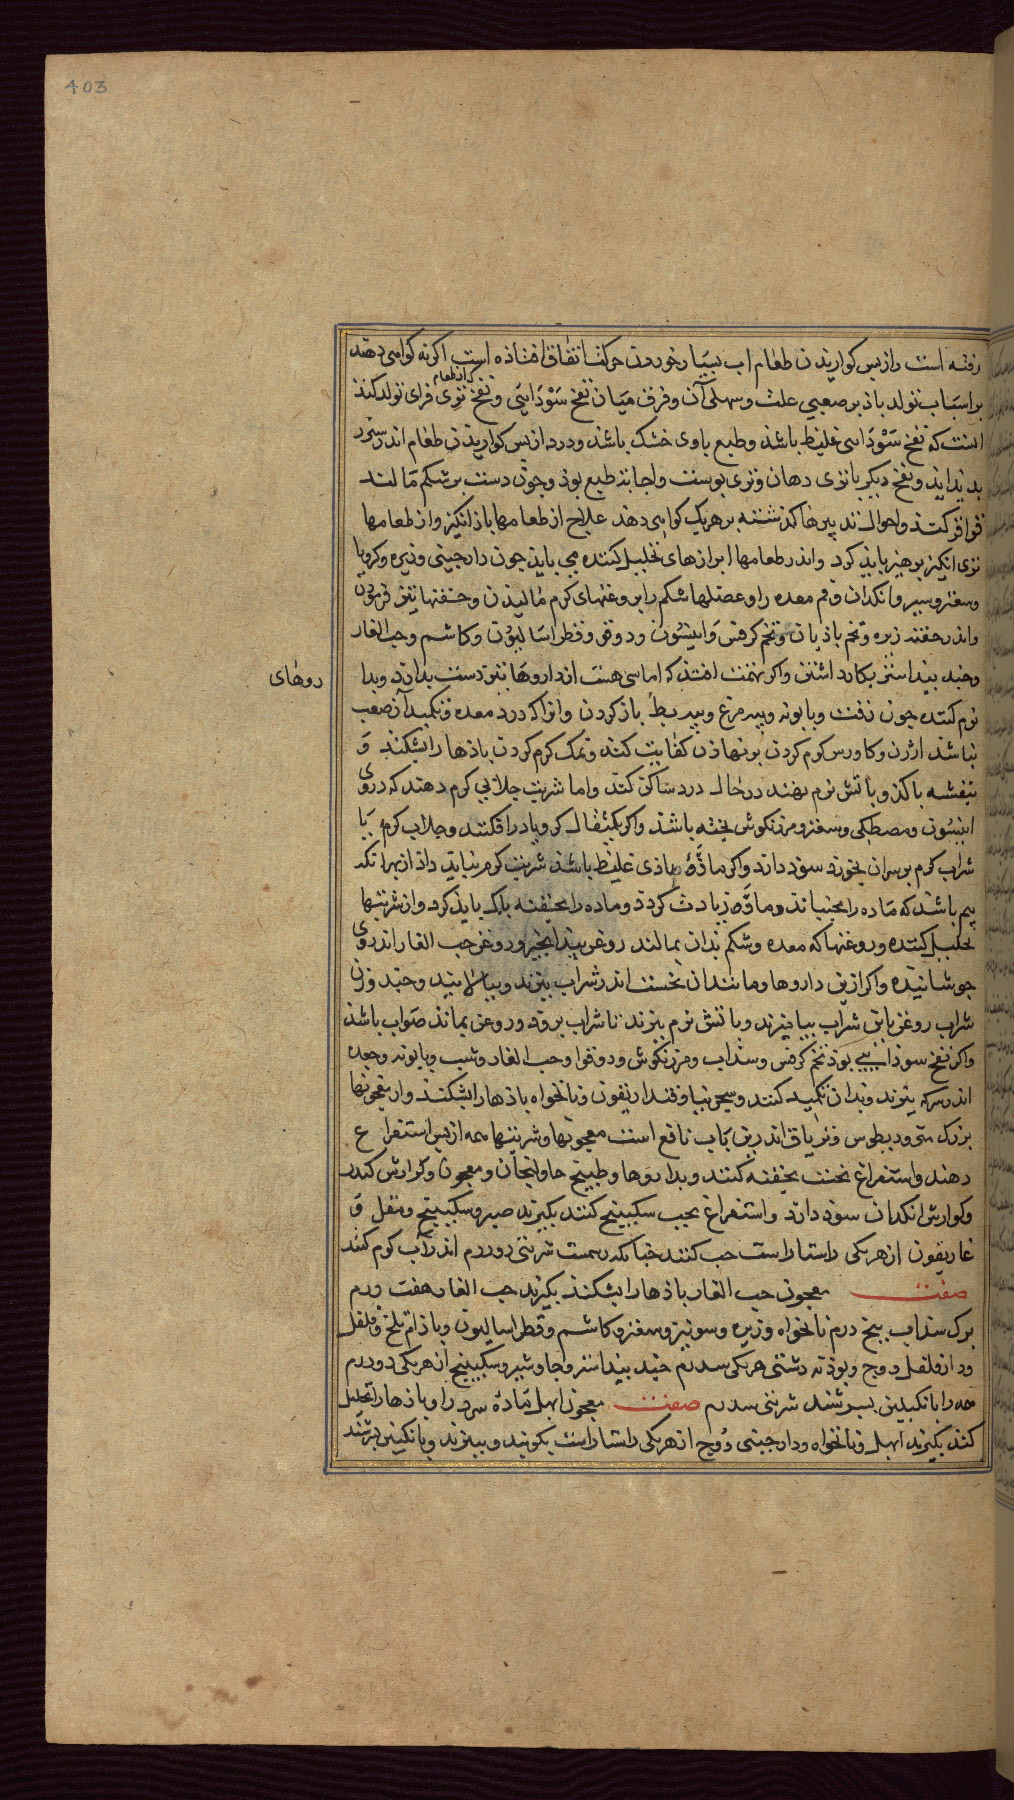 403
رفته است و از پس کواریذن طعام اب بسیار خوردن حرکتها اتفاق افتاذه است اکر نه کواهی دهند
بر اسباب تولد باذ بر صعبی علت و سهلی آن و فرق میان نفخ سَوْدَایی و نفخ تزی که از طعام فزای تولد کنذ
انست که نفخ سَوْدَایی غلیظ باشذ و طبع با وی خشک باشذ و درد از پس کواریذن طعام اندر سپرز
بدید ایذ و نفخ دیکر با تری دهان و تری پوست و اجابت طبع بوذ و چون دست بر شکم مالند
قراقر کند و احوال تدبیرها کذشته بر هریک کواهی دهد علاج از طعامها باذ انکیز و از طعامها
تری انکیز پرهیز بایذ کرد و اندر طعامها ابزارهای تحلیل کننده می بایذ چون دارچینی و زیره و کرویا
و سعتر و سیر و انکدان و فم معده را و عضلهاء شکم را بروغنهای کرم مالیذن و حقنهاء تیز فرمودن
و اندر حقنه زیره و تخم باذیان و تخم کرفس و انیسون و دوقو و فطراسالیون و کاشم و حب الغار
و جند بیدستر بکار داشتن و اکر تهمت افتد که اماسی هست از داروهاء تیز دست بدارد و بدا
روهای
نرم کننده چون زفت و بابونه و پیه مرغ و پیه بط باز کردن و انرا که درد معده و تکمید آن صعب
نباشد ارزن و کاورس کرم کردن و برنهاذن کفایت کند و نمک کرم کردن باذها را بشکند و
بنفشه باکذو با تش نرم بنهند در حال درد ساکن کند و اما شربت جلابی کرم دهند که دروی
انیسون و مصطکی و سعتر و مرزنکوش پخته باشذ و اکر یکمثقال کرویا درافکنند و جلاب کرم یا
شراب کرم بر سر ان بخورد سود دارد و اکر مادّهٔ باذی غلیظ باشذ شربت کرم نباید داذ از بهر انکه
بیم باشد که ماده را بجنباند و مادّه زیادت کردد و ماده را بحقنه پاک بایذ کرد و از شربتها
تحلیل کننده و روغنها که معده و شکم بدان بمالند روغن بید انجیر و روغن حب الغار اندر وی
جوشانیده و اکر ازین داروها و مانند ان نخست اندر شراب بپزند و بپالایند و چند وزن
شراب روغن با این شراب بیامیزند و با تش نرم بپزند تا شراب برود و روغن بماند صواب باشذ
و اکر نفخ سوذایی بوذ تخم کرفس و سذاب و مرزنکوش و دوقوا و حب الغار و شبت و بابونه و جعده
اندر سرکه بپزند و بدان تکمید کنند و سجزنیا و قنداریقون و نانخواه باذها را بشکند و از معجونها
بزرک مثرودیطوس و تریاق اندرین باب نافع است معجونها و شربتها همه از پس استفراغ
دهند و استفراغ نخست بحقنه کنند و بداروها و طبیخ خاولنجان و معجون و کوارش کندر
و کوارش انکدان سود دارد و استفراغ بحب سکبینج کنند بکیرند صبر و سکبینج و مقل و
غاریقون از هر یکی راستا راست حب کنند چنانکه رسمست شربتی دو درم اندر آب کرم کنند
صفت معجون حب الغار باذها را بشکند بکیرند حب الغار هفت درم
برک سذاب پنج درم نانخواه و زیره و سونیز و سعتر و کاشم و فطراسالیون و باذام تلخ و فلفل
و دار فلفل و وج و پوذنه دشتی هر یکی سه درم جند بیدستر و جاوشیر و سکبینج از هر یکی دو درم
همه را بانکبین بسرشند شربتی سه درم صفت معجون ابهل مادهٔ سرد را و باذها را تحلیل
کند بکیرند ابهل و نانخواه و دارچینی و وج از هر یکی راستا راست بکوبند و ببیزند و بانکبین بسرشند